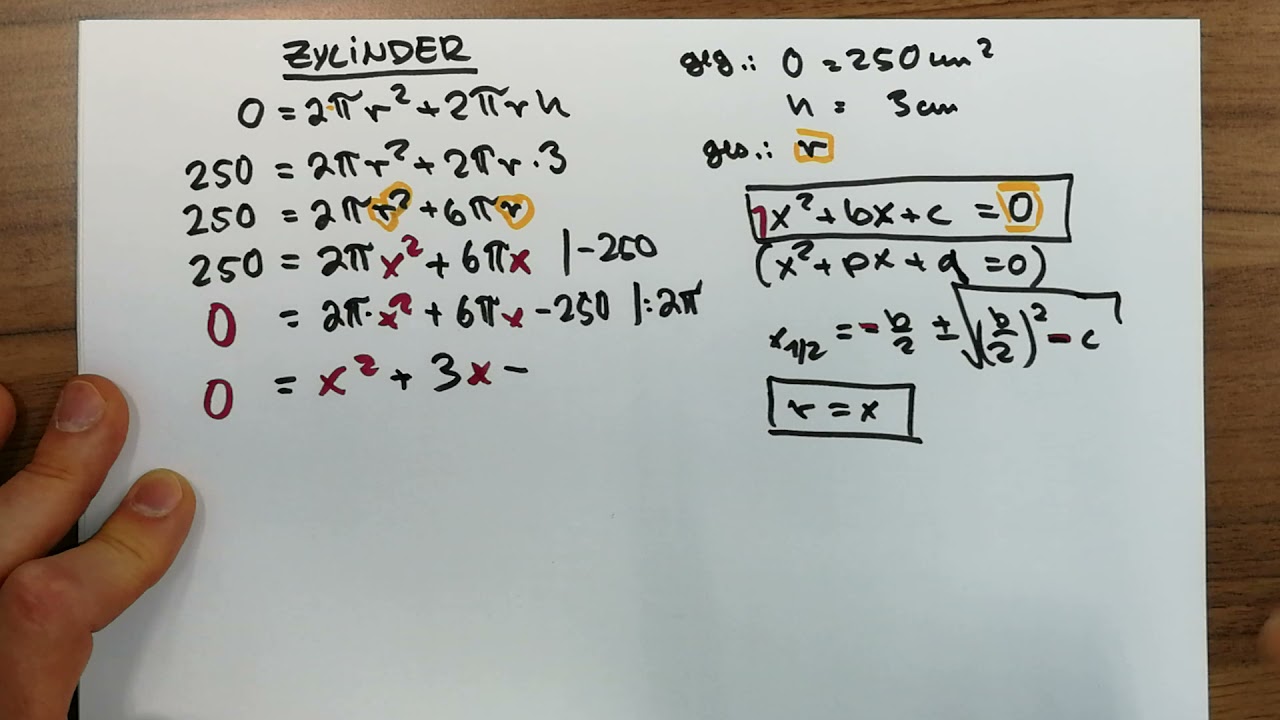 ZYLINDER
O = 2πr² + 2πrh
250 = 2πr² + 2πr · 3
250 = 2πr² + 6πr
250 = 2πx² + 6πx |-250
0 = 2π·x² + 6πx - 250 |:2π
0 = x² + 3x -
geg.: O = 250 cm²
h = 3 cm
ges.: r
1x² + bx + c = 0
(x² + px + q = 0)
x1/2 = - b/2 ± √((b/2)² - c)
r = x